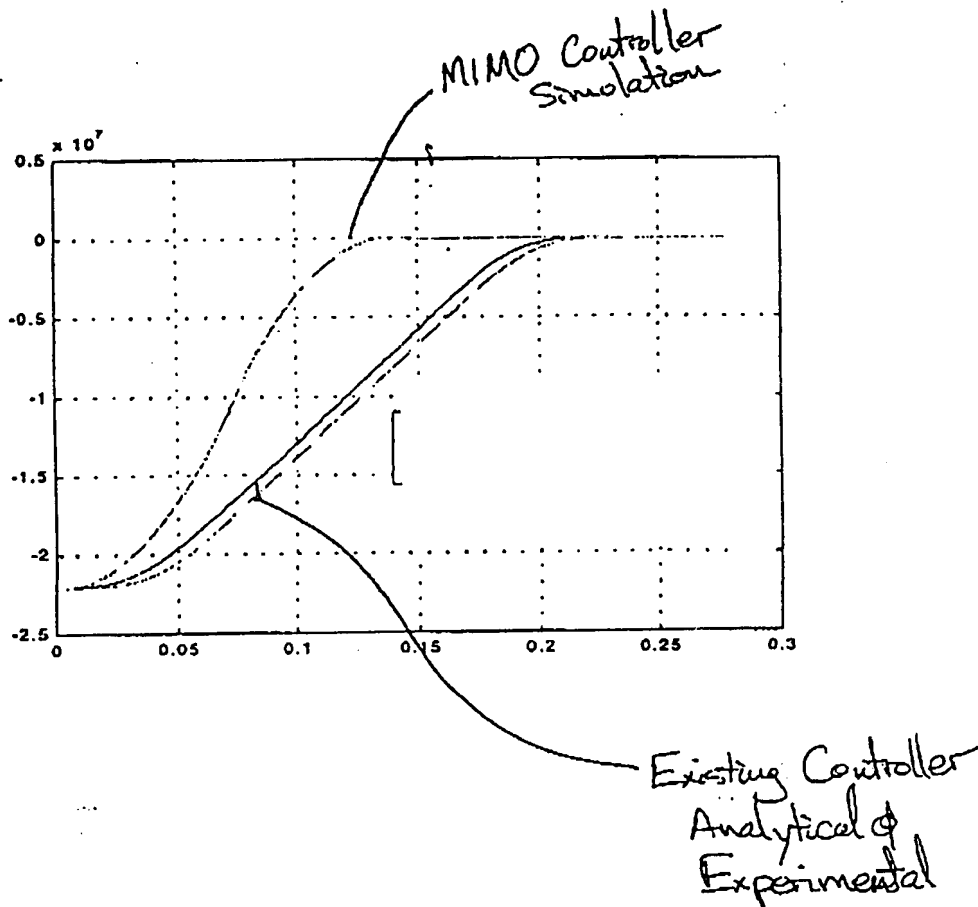 MIMO Controller
Simulation
x 10⁷
0.5
0
-0.5
-1
-1.5
-2
-2.5
0
0.05
0.1
0.15
0.2
0.25
0.3
Existing Controller
Analytical &
Experimental